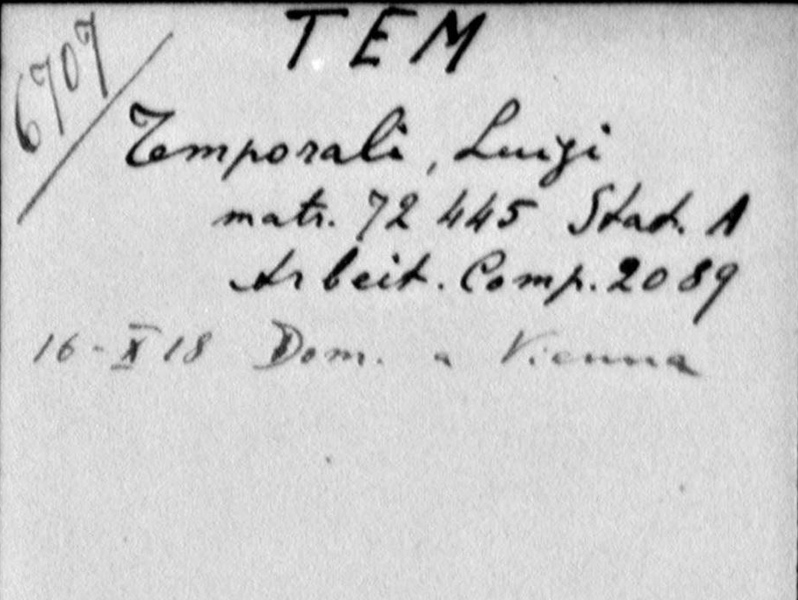 6707
TEM
Temporali, Luigi
matr. 72 445 Stat. A
Arbeit. Comp. 2089
16-X 18 Dom. a Vienna